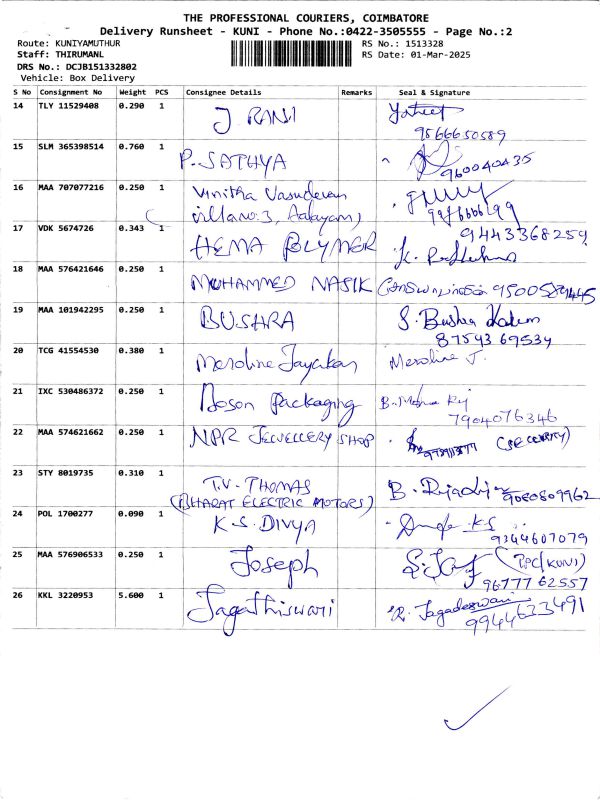 THE PROFESSIONAL COURIERS, COIMBATORE
Delivery Runsheet - KUNI - Phone No.:0422-3505555 - Page No.:2
Route: KUNIYAMUTHUR
RS No.: 1513328
Staff: THIRUMANL
RS Date: 01-Mar-2025
DRS No.: DCJB151332802
Vehicle: Box Delivery
S No Consignment No Weight PCS Consignee Details Remarks Seal & Signature
14 TLY 11529408 0.290 1 J. RANI
9566650589
15 SLM 365398514 0.760 1 P. SATHYA
960040435
16 MAA 707077216 0.250 1 Vinitha Vasudevan
villa no: 3, Aalayam)
17 VDK 5674726 0.343 1 HEMA POLYMER
9443368259
18 MAA 576421646 0.250 1 MUHAMMED NASIK
19 MAA 101942295 0.250 1 BUSHRA S. Bushra
87543 69534
20 TCG 41554530 0.380 1 Meroline Jayakar Meroline J.
21 IXC 530486372 0.250 1 Packaging
7904076346
22 MAA 574621662 0.250 1 NPR JEWELLERY SHOP (SECURITY)
23 STY 8019735 0.310 1 T.V. THOMAS
(BHARAT ELECTRIC MOTORS) B. 9080809962
24 POL 1700277 0.090 1 K. S. DIVYA
9344607079
25 MAA 576906533 0.250 1 Joseph (TPC/KUNI)
96777 62557
26 KKL 3220953 5.600 1 Jagathiswari R. Jagadeswari
9944633491